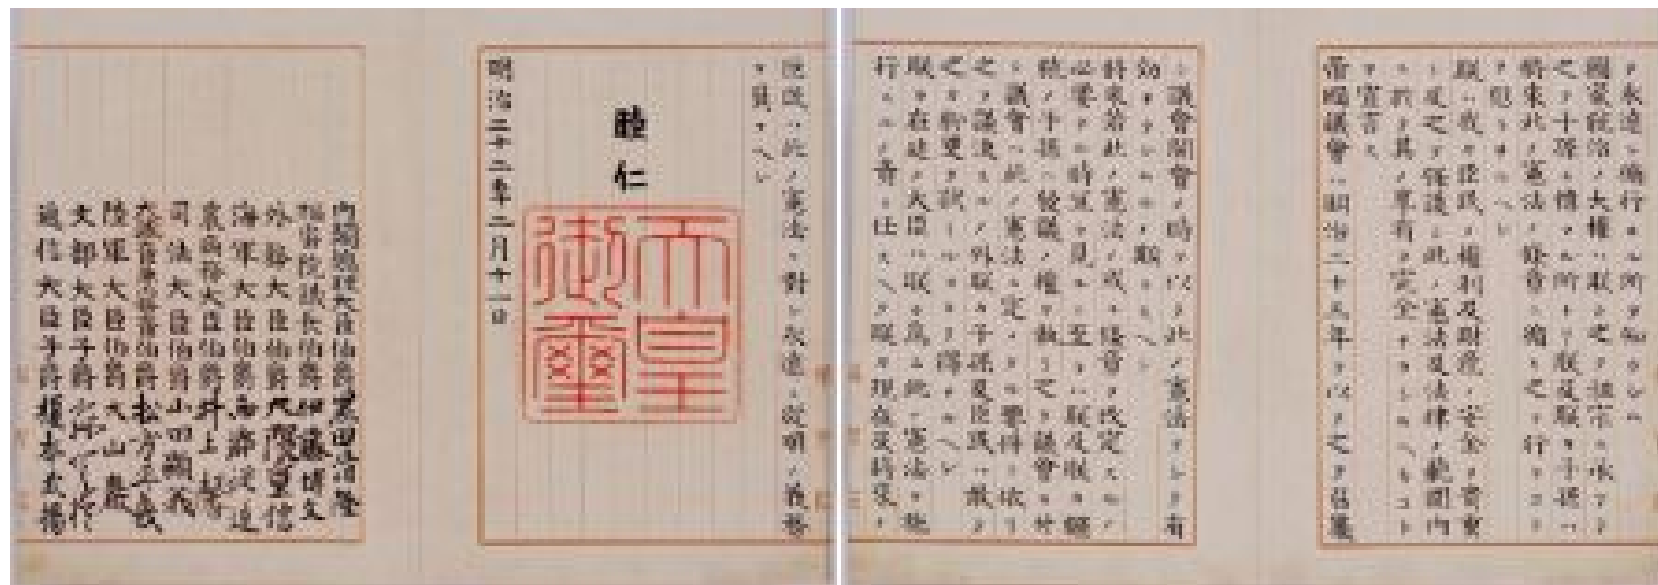 ヲ永遠ニ循行スル所ヲ知ラシム
國家統治ノ大權ハ朕カ之ヲ祖宗ニ承ケテ
之ヲ子孫ニ傳フル所ナリ朕及朕カ子孫ハ
將來此ノ憲法ノ條章ニ循ヒ之ヲ行フコト
ヲ愆ラサルヘシ
朕ハ我カ臣民ノ權利及財產ノ安全ヲ貴重
シ及之ヲ保護シ此ノ憲法及法律ノ範圍内
ニ於テ其ノ享有ヲ完全ナラシムヘキコト
ヲ宣言ス
帝國議會ハ明治二十三年ヲ以テ之ヲ召集
シ議會開會ノ時ヲ以テ此ノ憲法ヲシテ有
効ナラシムルノ期トスヘシ
將來若此ノ憲法ノ或ル條章ヲ改定スルノ
必要ナル時宜ヲ見ルニ至ラハ朕及朕カ繼
統ノ子孫ハ發議ノ權ヲ執リ之ヲ議會ニ付
シ議會ハ此ノ憲法ニ定メタル要件ニ依リ
之ヲ議決スルノ外朕カ子孫及臣民ハ敢テ
之カ紛更ヲ試ミルコトヲ得サルヘシ
朕カ在廷ノ大臣ハ朕カ爲ニ此ノ憲法ヲ施
行スルノ責ニ任スヘク朕カ現在及將來ノ
臣民ハ此ノ憲法ニ對シ永遠ニ從順ノ義務
ヲ負フヘシ
睦仁
天皇
御璽
明治二十二年二月十一日
内閣總理大臣伯爵黒田清隆
樞密院議長伯爵伊藤博文
外務大臣伯爵大隈重信
海軍大臣伯爵西鄉從道
農商務大臣伯爵井上馨
司法大臣伯爵山田顯義
大藏大臣兼内務大臣伯爵松方正義
陸軍大臣伯爵大山巖
文部大臣子爵森有禮
遞信大臣子爵榎本武揚